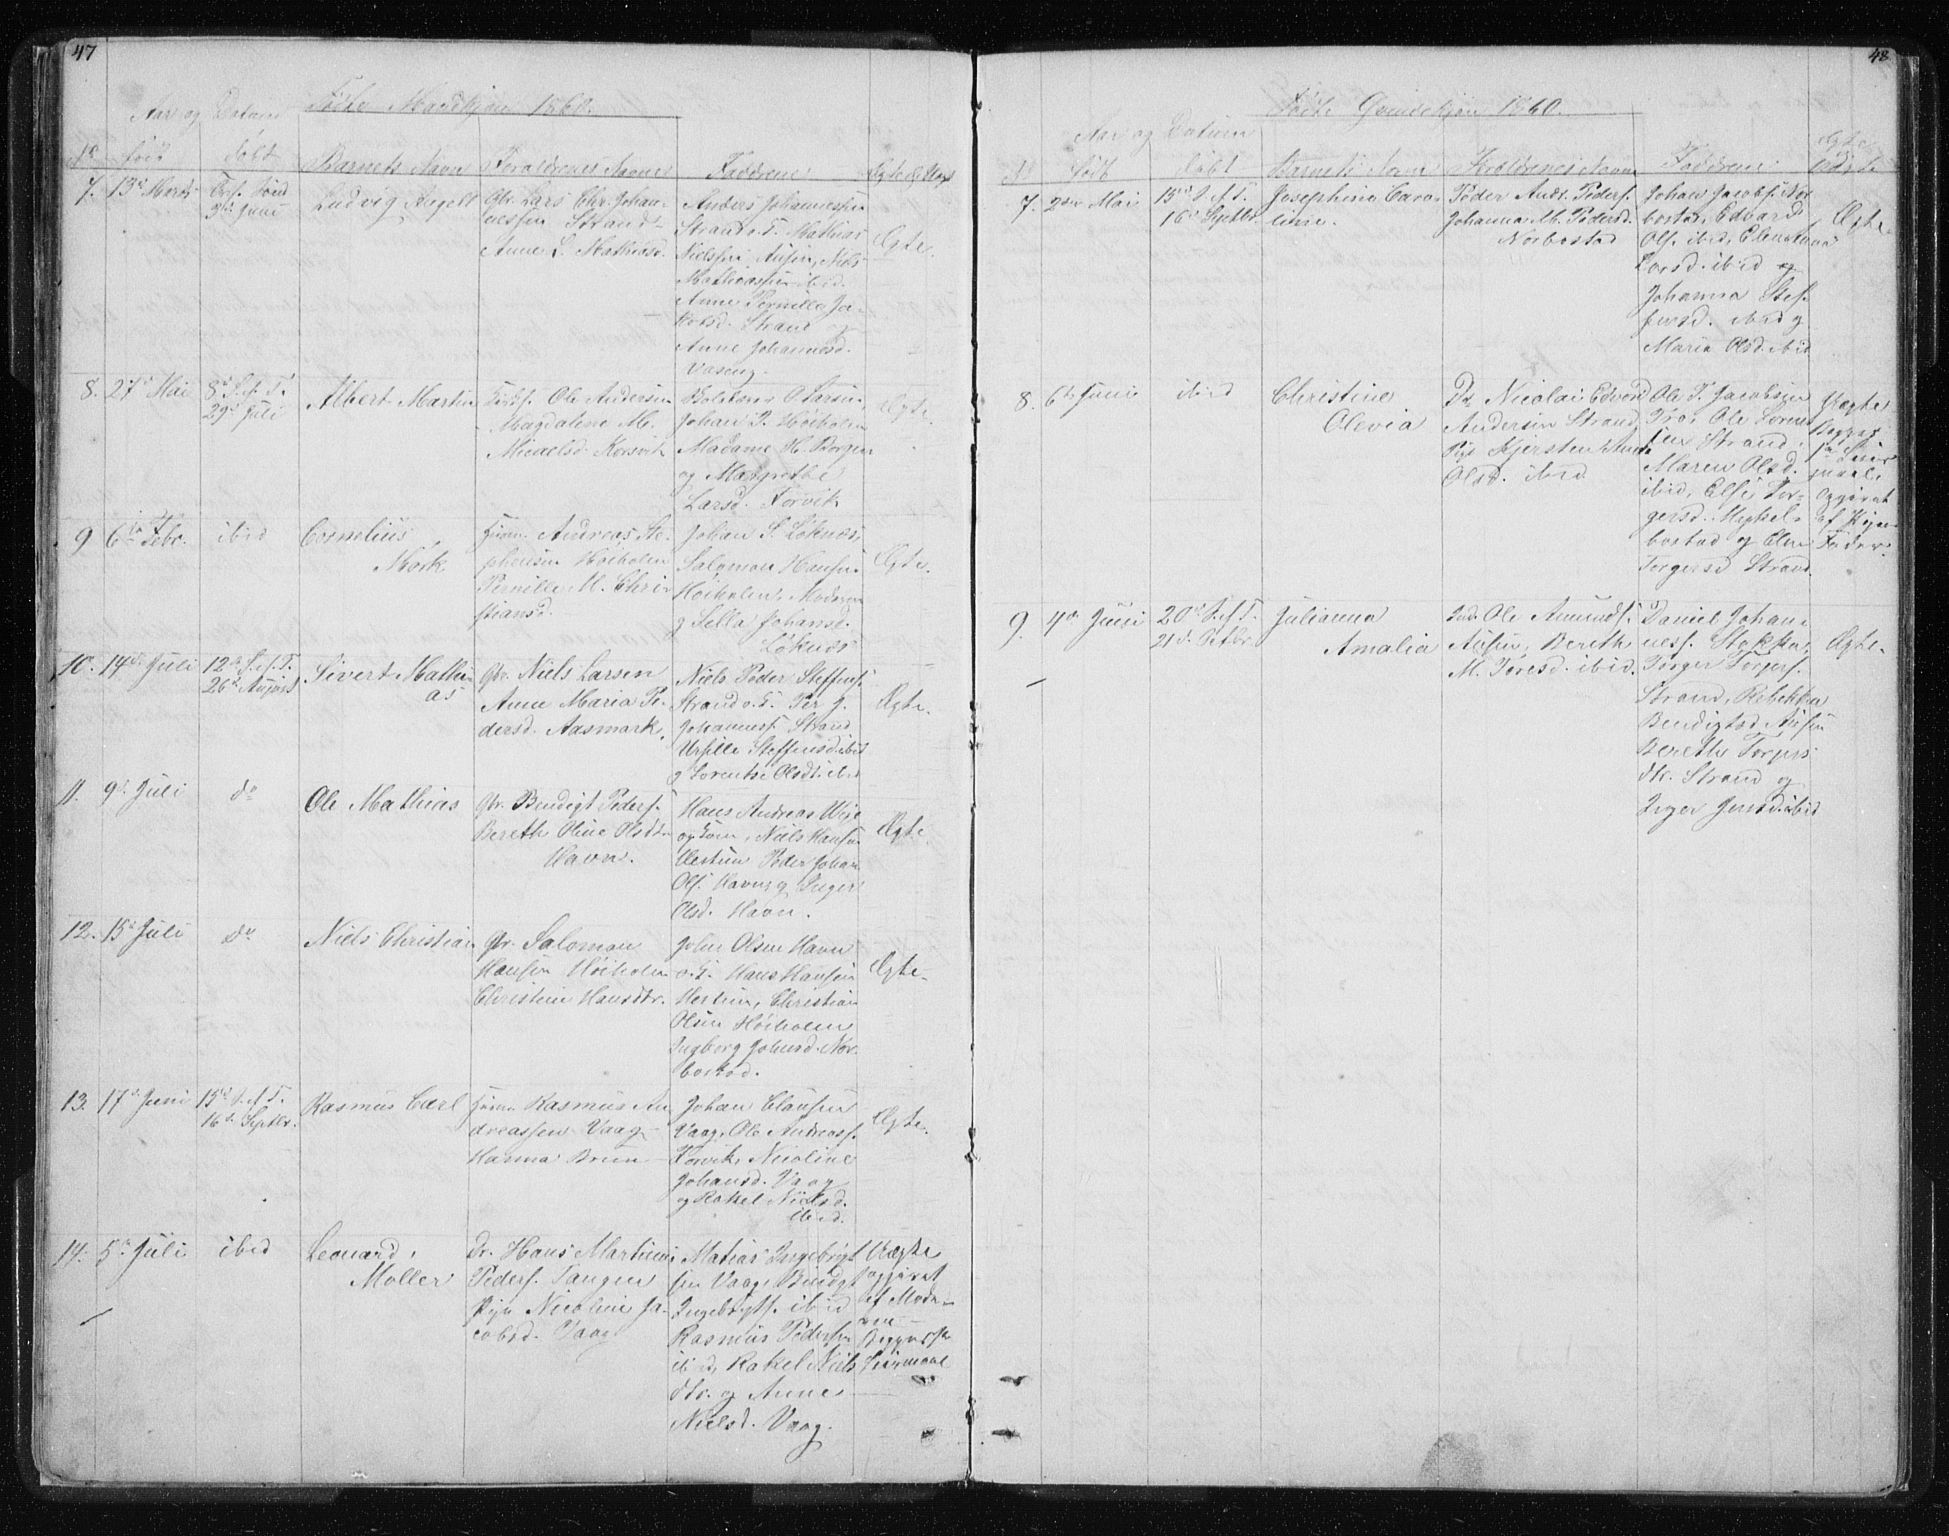 47
Fødte Mandkjøn 1860.
Aar og Datum
No født døbt Barnets Navn Forældrenes Navne Faddrene Ægte
7. 13de Marts
3die Juni
Ludvig Angell
Gbr. Lars Chr. Johan-
nessen Strand
Anne L. Mathiasd.
Anders Johannessen
Strand o. T. Mathias
Nielssen Ausen, Niels
Mathiassen ibid.
Anne Pernilla Ja-
kobsd. Strand og
Anne Johannesd.
Ægte.
8. 27de Mai
8de S. e. T.
29de Juli
Albert Martin
Ole Andersen
Magdalena M.
Micaelsd. Korsvik
O Larsen
Johan P. Høiholm
Madame H. Borgen
og Margrethe
Larsd. Forvik
Ægte.
9 6te Febr.
ibid
Cornelius
Mørk
Huusm. Andreas Ste-
phensen Høiholm
Pernilla M. Chri-
stiansd.
Johan S. Løknæs
Salomon Hansen
Høiholm, Moderen
og Sella Johansd.
Løknæs
Ægte.
10. 14de Juli
12te S. e. T.
26de August
Sivert Mathi-
as
Gbr. Niels Larsen
Anne Maria Pe-
dersd. Aasmark.
Niels Peder Steffens.
Strand o. T. Per J.
Johanness. Strand
Ursilla Steffensd. ibid
og Lorentse Olsdt. ibid
Ægte.
11. 9de Juli
do
Ole Mathias
Gbr. Bendigt Peders.
Bereth Oline Olsdtr
Havn.
Hans Andreas Wise
og Kone, Niels Hansen
Peder Johan
Ols. Havn, og Inger
Olsd. Havn.
Ægte
12. 15de Juli
do
Niels Christian
Gbr. Salomon
Hansen Høiholm
Christine Hansdtr.
John Olsen Havn
o. T. Hans Hansen
Christian
Olsen Høiholm
Ingborg Johnsd. Nor-
bostad.
Ægte
13. 17de Juni
15de S. e. T.
16de Septbr.
Rasmus Carl
Huusm. Rasmus An-
dreassen Vaag
Hanna Brun
Johan Clausen
Vaag, Ole Andreass.
Forvik, Nicoline
Johansd. Vaag
og Rakel Nielsd.
ibid.
Ægte.
14. 5te Juli
ibid
Leonard
Møller
Dr. Hans Martinus
Peders. Tangen
Pige Nicoline Ja-
cobsd. Vaag
Matias Ingebrigt
sen Vaag, Bendigt
Ingebrigts. ibid
Rasmus Pedersen
ibid, Rakel Niels
dtr. og Anne
Nielsd. Vaag.
Uægte
opgivet
af Mode-
ren
Begges 1ste
Leiermaal
48
Fødte Qvindekjøn 1860.
Aar og Datum
No født døbt Barnets Navn Forældrenes Navne Faddrene
Ægte
Uægte
7. 2den Mai
15de S. e. T.
16de Septbr.
Josephine Caro-
line.
Peder Andr. Peders.
Johanna M. Pedersd.
Norbostad
Johan Jacobsen Nor
bostad, Edvard
Ols. ibid, Elen Anna
Larsd. ibid og
Johanna Stef-
fensd. ibid og
Maria Olsd. ibid
Ægte.
8. 6te Juni
ibid
Christine
Olevia
Dr. Nicolai Edvard
Andersen Strand
Pige Kjersten Anna
Olsd. ibid
Ole T. Jacobsen
Tro, Ole Loren
sen Strand
Maren Olsd.
ibid, Else Tor-
gersd. Mykel-
bostad og Elen
Torgersd Strand.
Uægte
Begges
1ste Leier-
maal.
Opgivet
af Pigens
Fader.
9. 4de Juni
20de S. e. T.
21de Octbr.
Julianna
Amalia
Ind. Ole Amunds.
Ausen, Bereth
M. Toresd. ibid.
Daniel Johan-
ness. Stokka,
Torger Torgers.
Strand, Rebekka
Bendigtsd. Ausen
Berethe Torgers
dtr. Strand og
Inger Jensd. ibid
Ægte.